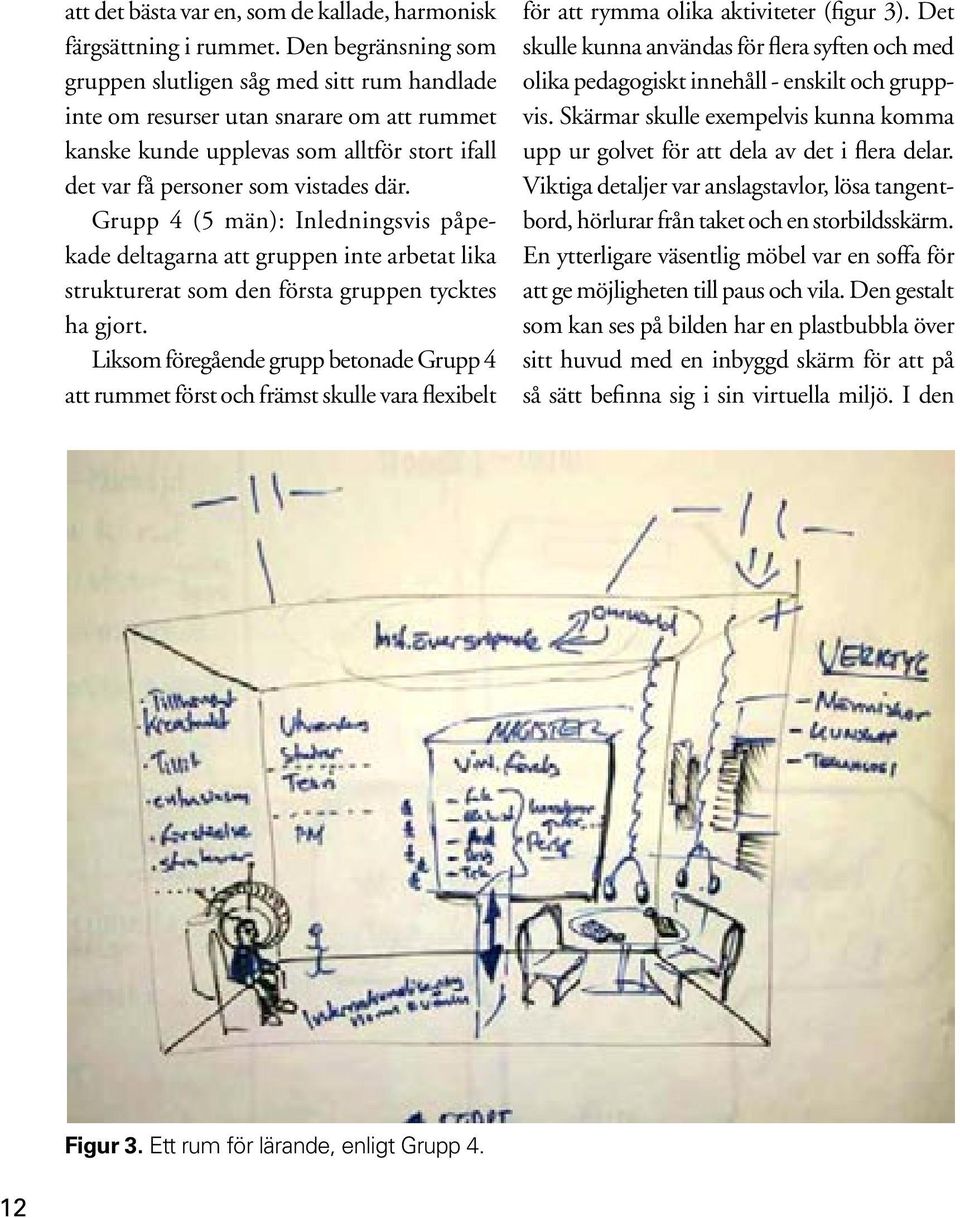 att det bästa var en, som de kallade, harmonisk
färgsättning i rummet. Den begränsning som
gruppen slutligen såg med sitt rum handlade
inte om resurser utan snarare om att rummet
kanske kunde upplevas som alltför stort ifall
det var få personer som vistades där.
Grupp 4 (5 män): Inledningsvis påpe-
kade deltagarna att gruppen inte arbetat lika
strukturerat som den första gruppen tycktes
ha gjort.
Liksom föregående grupp betonade Grupp 4
att rummet först och främst skulle vara flexibelt
för att rymma olika aktiviteter (figur 3). Det
skulle kunna användas för flera syften och med
olika pedagogiskt innehåll - enskilt och grupp-
vis. Skärmar skulle exempelvis kunna komma
upp ur golvet för att dela av det i flera delar.
Viktiga detaljer var anslagstavlor, lösa tangent-
bord, hörlurar från taket och en storbildsskärm.
En ytterligare väsentlig möbel var en soffa för
att ge möjligheten till paus och vila. Den gestalt
som kan ses på bilden har en plastbubbla över
sitt huvud med en inbyggd skärm för att på
så sätt befinna sig i sin virtuella miljö. I den
Omvärld
VERKTYG
- Människor
- KUNSKAP
- TEKNOLOGI
MAGISTER
· Tillit
Team
PM
Persp
START
Figur 3. Ett rum för lärande, enligt Grupp 4.
12